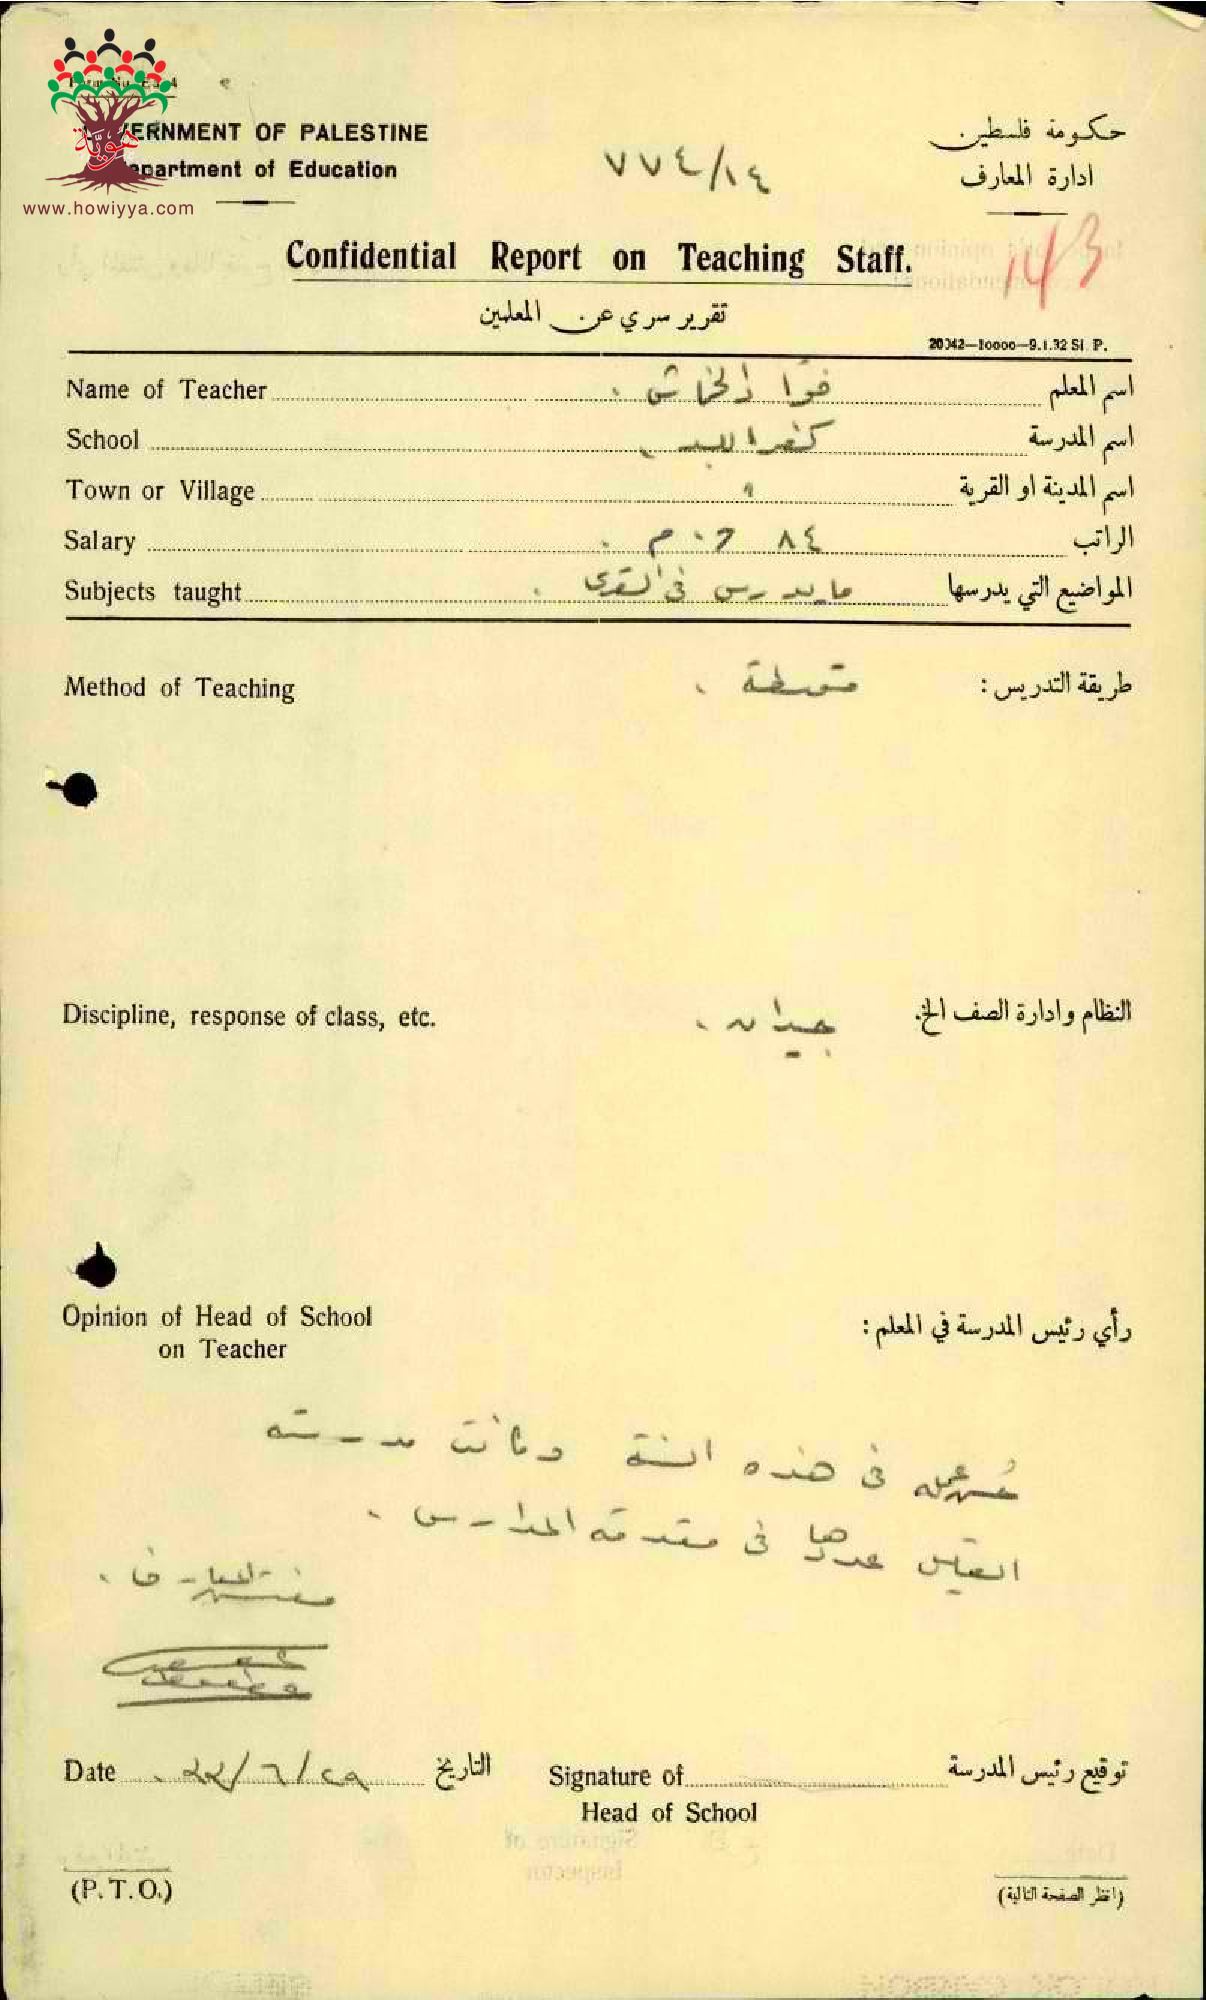 GOVERNMENT OF PALESTINE
Department of Education
حكومة فلسطين
ادارة المعارف
٧٧٤/١٤
www.howiyya.com
هوية
143
Confidential Report on Teaching Staff.
تقرير سري عن المعلمين
20042—10000—9.1.32 Sl. P.
Name of Teacher فؤاد الخماش . اسم المعلم
School اسم المدرسة
Town or Village " اسم المدينة او القرية
Salary ٨٤ ج. م . الراتب
Subjects taught ما يدرس في القرى . المواضيع التي يدرسها
Method of Teaching متوسطة . طريقة التدريس :
Discipline, response of class, etc. جيدان . النظام وادارة الصف الخ.
Opinion of Head of School
on Teacher
رأي رئيس المدرسة في المعلم :
عمله في هذه السنة وكانت مدرسته
القليل عددها في مقدمة المدارس .
مفتش المعارف .
Date ٢٩/٦/٣٢ التاريخ
Signature of توقيع رئيس المدرسة
Head of School
(P.T.O.)
(انظر الصفحة التالية)